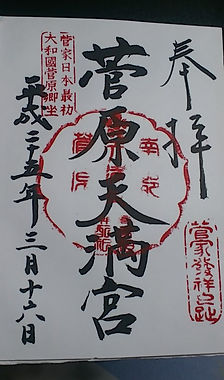 奉拝
菅家日本最初
大和國菅原郷坐
菅原天満宮
菅家發祥之趾
平成二十五年三月十六日